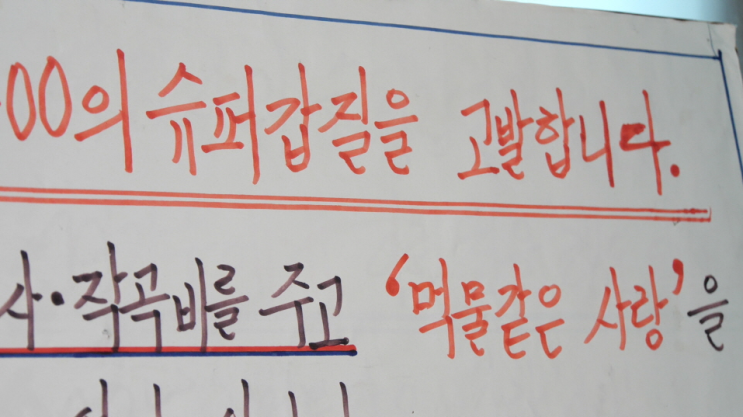 OO의 슈퍼갑질을 고발합니다.
사·작곡비를 주고 '먹물같은 사랑'을